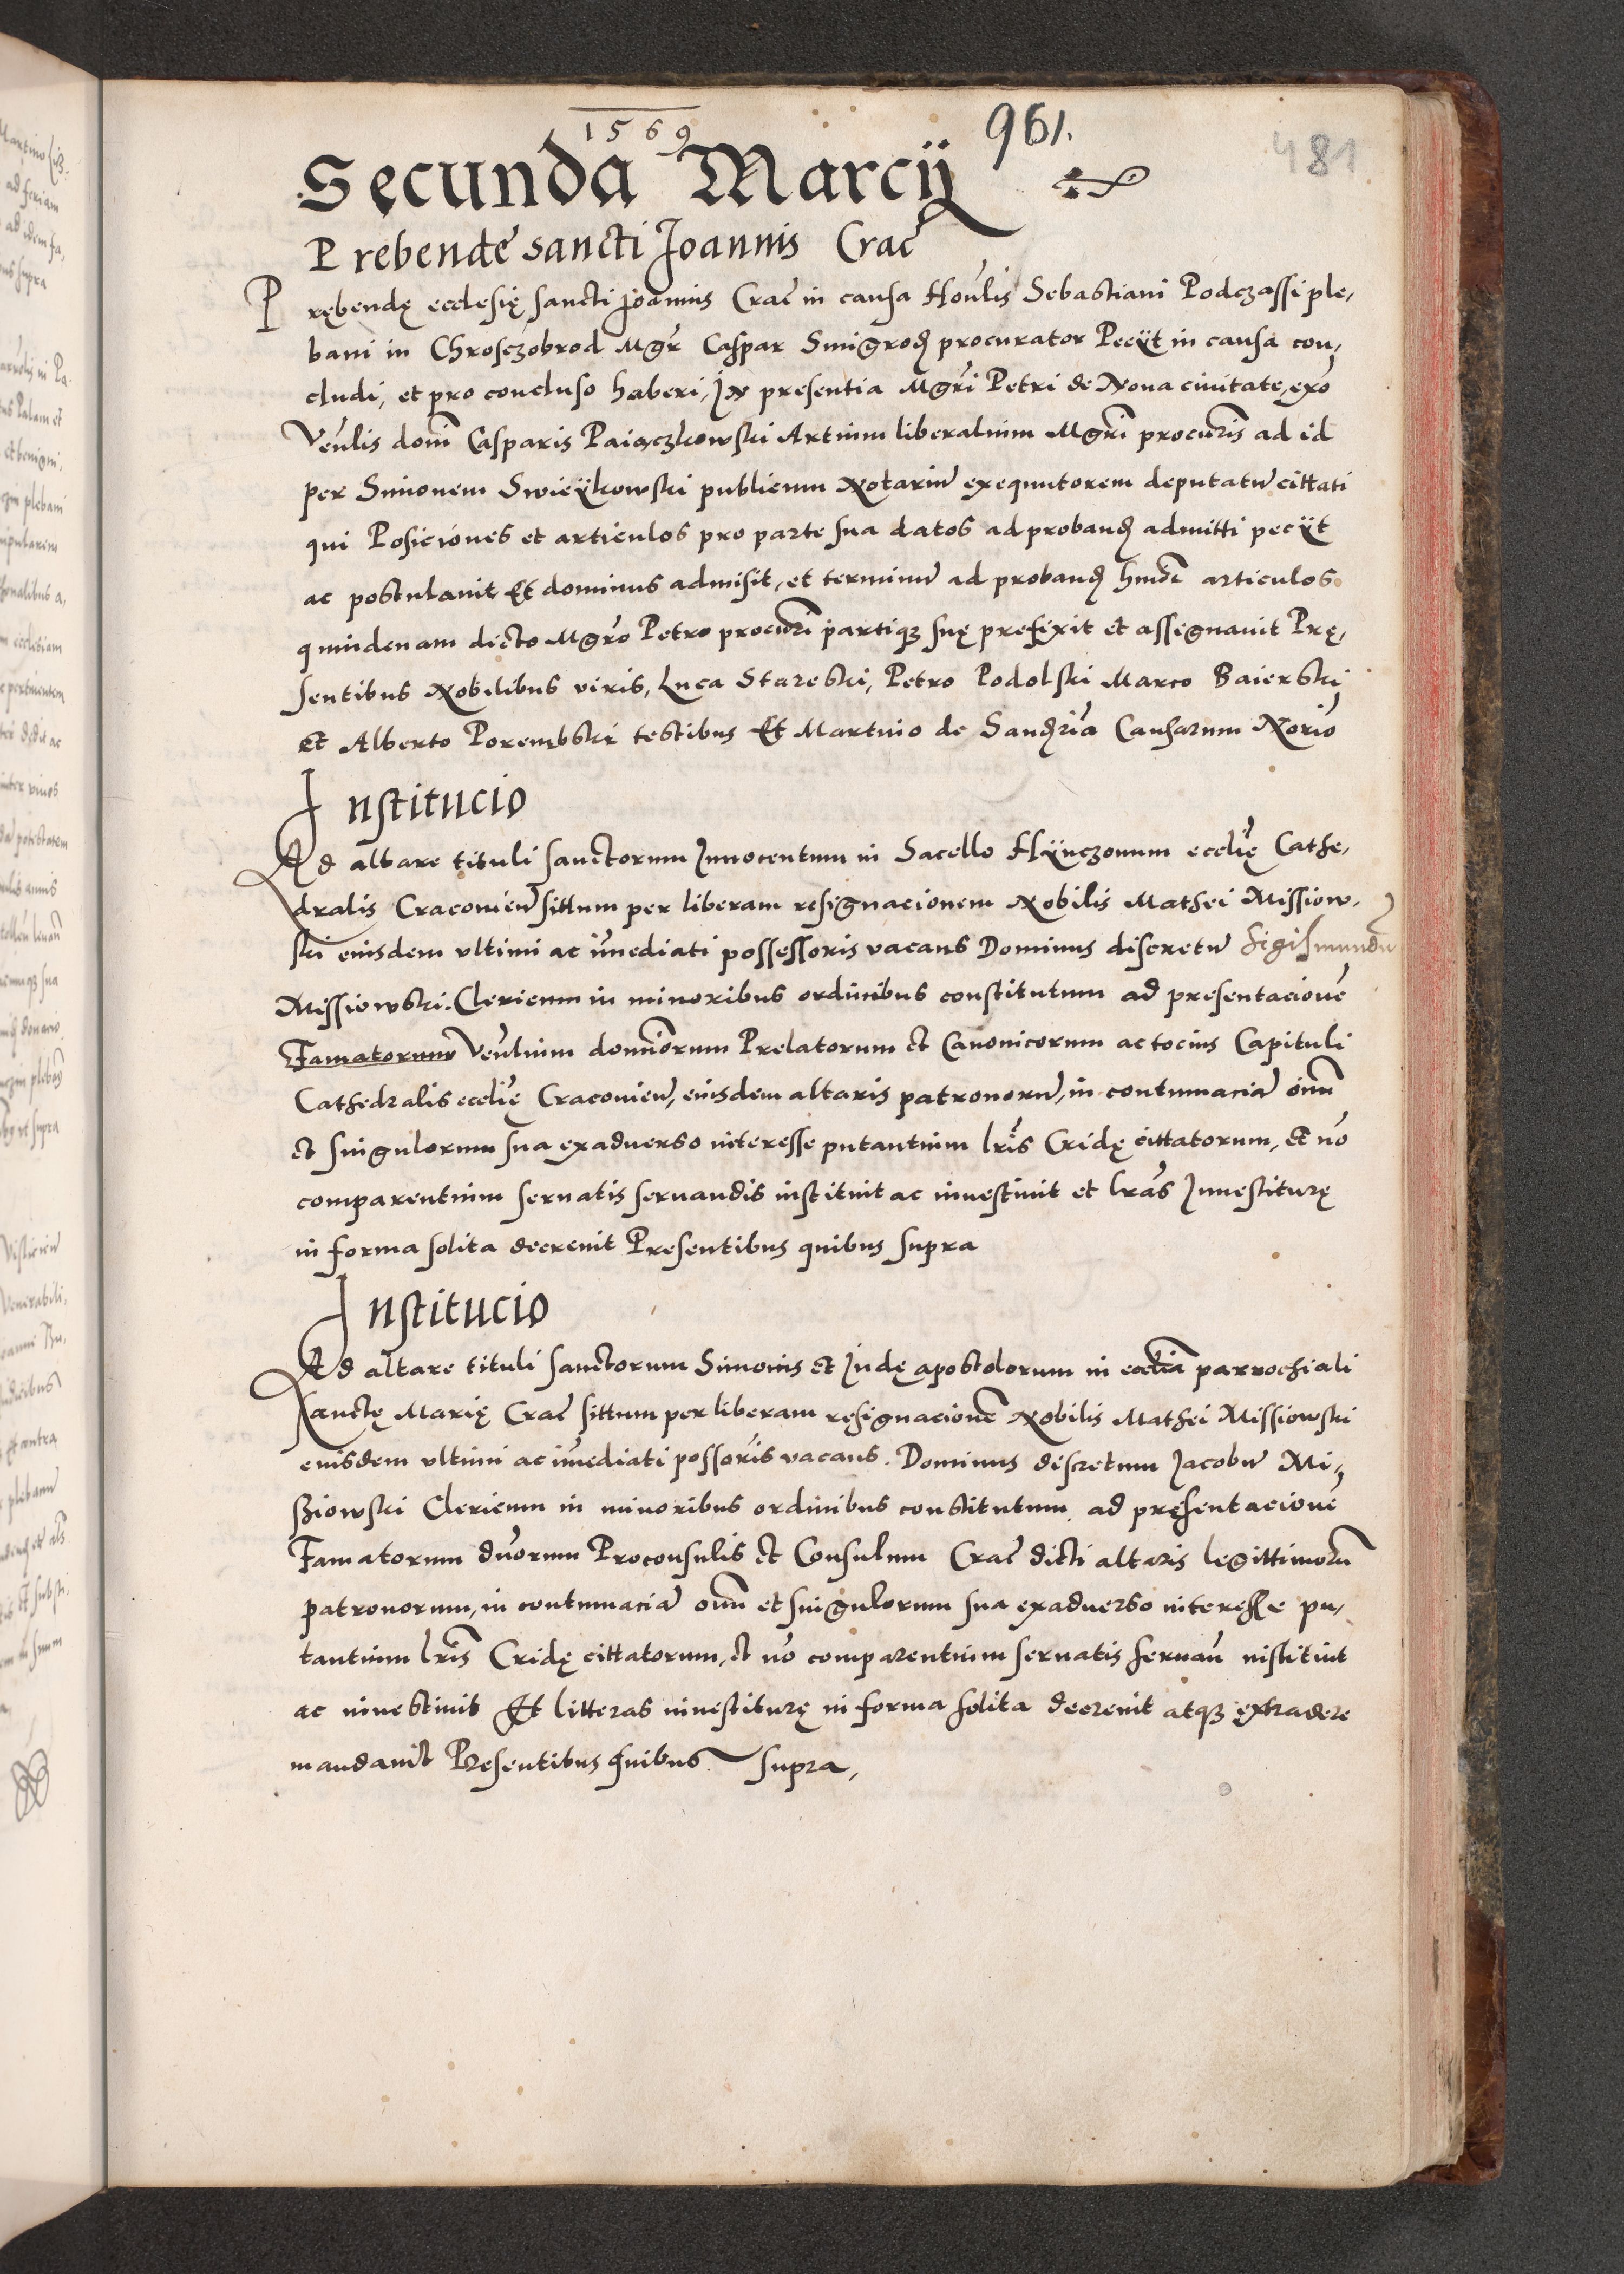 1569
961.
481
Secunda Marcij
Prebende sancti Joannis Crac
Prębendę ecclesię sancti Joannis Crac in causa Honlis Sebastiani Podczassi ple,
bani in Chrosczobrod Mgr Caspar Smigrod procurator Pecÿt in causa con,
cludi, et pro concluso haberi, In presentia Mgri Petri de Noua ciuitate, exo
Venlis domi Casparis Paiączkowski Artium liberalium Mgri procuris ad id
per Simonem Swieÿkowski publicum Notariu exequutorem deputatu cittati
qui Posiciones et articulos pro parte sua datos ad proband admitti pecÿt
ac postulauit Et dominus admisit, et terminu ad proband hmoi articulos
quindenam dicto Mgro Petro procuri partiqz suę prefixit et assignauit Prę,
sentibus Nobilibus viris, Luca Stareski, Petro Podolski Marco Baierski
Et Alberto Porembski testibus Et Martino de Sandria Causarum Norio
Institucio
Ad altare tituli sanctorum Innocentum in Sacello Hÿnczonum ecclię Cathe,
dralis Cracouien situm per liberam resignacionem Nobilis Mathei Missiow,
ski eiusdem vltimi ac imediati possessoris vacans Dominus discretu Sigismundu
Missiowski Clericum in minoribus ordinibus constitutum ad presentacione
Famatorum Venlium dominorum Prelatorum et Canonicorum ac tocius Capituli
Cathedralis ecclię Cracouien, eiusdem altaris patronoru, in contumacia oium
et singulorum sua exaduerso interesse putantium lris Cridę cittatorum, et no
comparentium seruatis seruandis instituit ac inuestiuit et lras Inuestiturę
in forma solita decreuit Presentibus quibus supra
Institucio
Ad altare tituli sanctorum Simonis et Judę apostolorum in ecclia parrochiali
Sanctę Marię Crac sittum per liberam resignacione Nobilis Mathei Missiowski
eiusdem vltimi ac imediati possoris vacans. Dominus discretum Jacobu Mi,
sziowski Clericum in minoribus ordinibus constitutum ad pręsentacione
Famatorum dnorum Proconsulis et Consulum Crac dicti altaris legittimoru
patronorum, in contumacia oium et singulorum sua exaduerso interesse pu,
tantium lris Cridę cittatorum, et no comparentium seruatis seruan instituit
ac inuestiuit Et litteras inuestiturę in forma solita decreuit atqz extradere
mandauit Presentibus quibus supra,